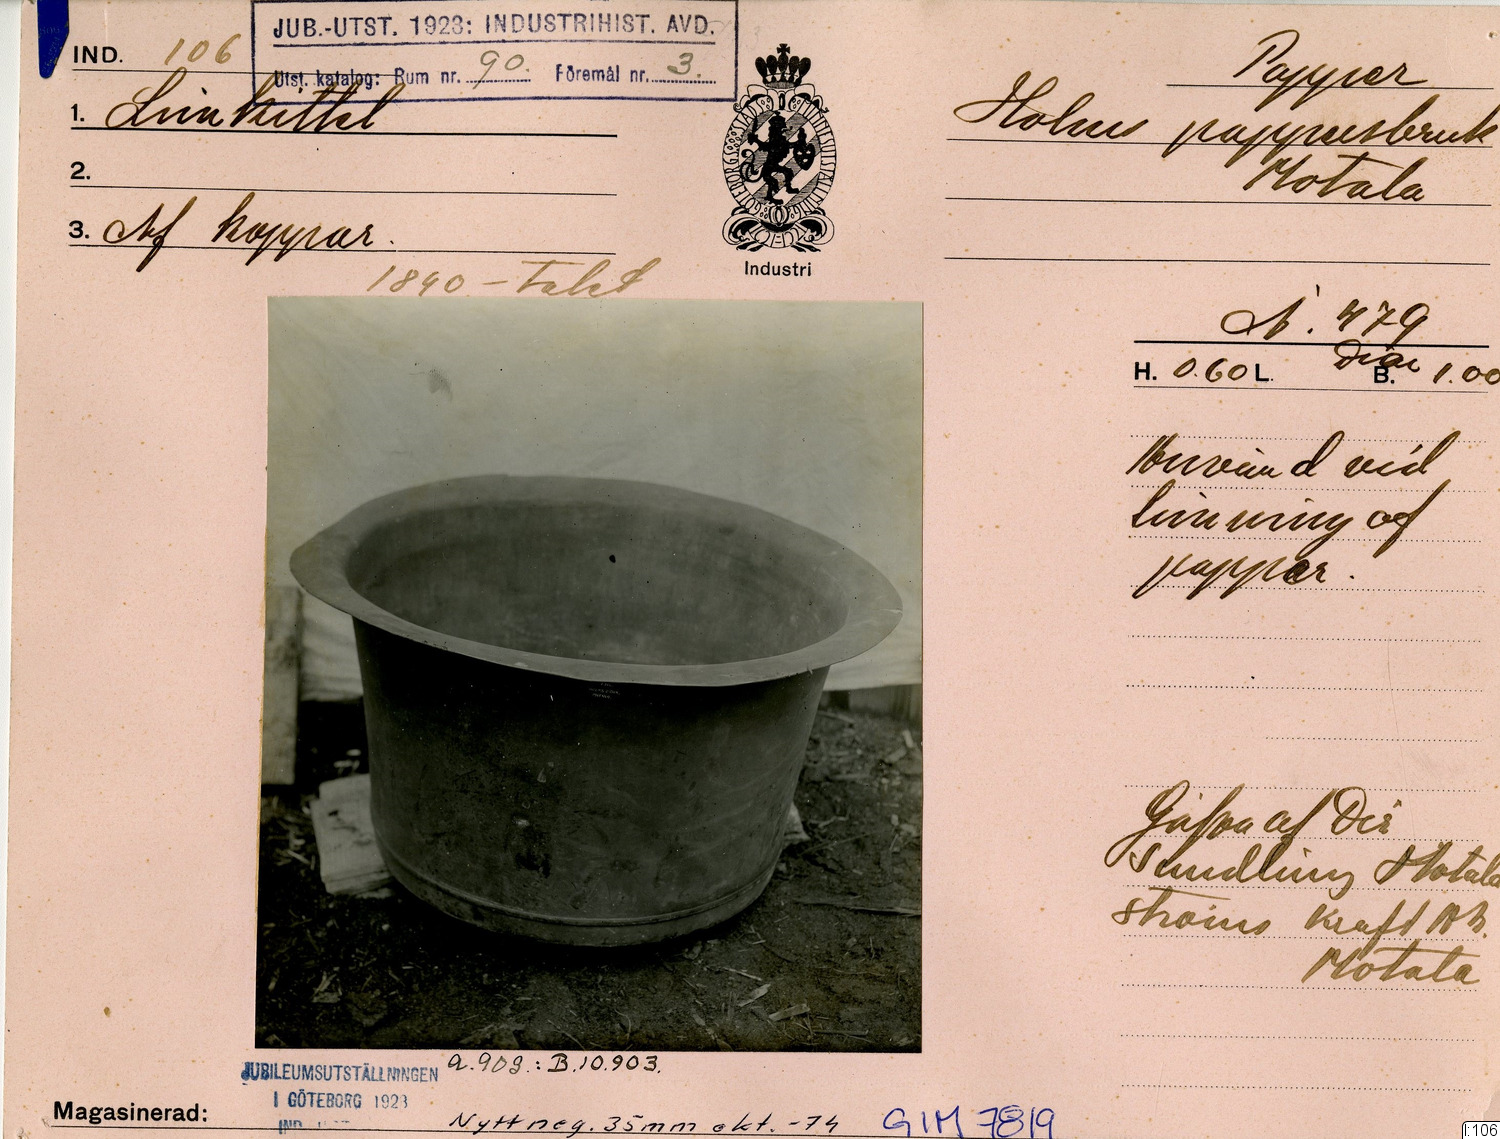 JUB.-UTST. 1923: INDUSTRIHIST. AVD.
Utst. katalog: Rum nr. 90. Föremål nr. 3.
IND. 106
1. Limkittel
2.
3. Af koppar.
1840 - talet
GÖTEBORGS STADS MINNESUTSTÄLLNING
Industri
Papper
Holms pappersbruk
Motala
N. 479
H. 0.60 L. Diam B. 1.00
Använd vid
limning af
papper.
Gåfva af Dir
Sundling Motala
ströms Kraft AB.
Motala
JUBILEUMSUTSTÄLLNINGEN
I GÖTEBORG 1923
IND.
a.909.: B.10.903.
Magasinerad:
Nytt neg. 35mm okt. -74
GIM 7819
I:106